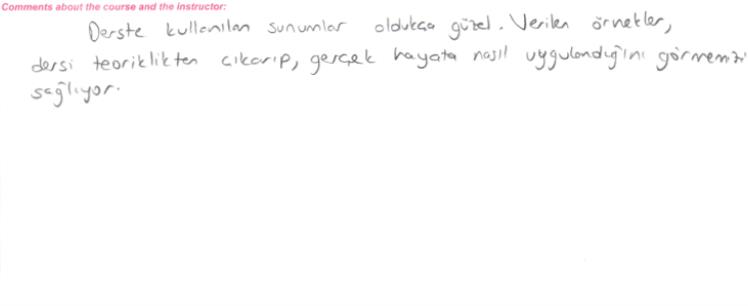 Comments about the course and the instructor:
Derste kullanılan sunumlar oldukça güzel. Verilen örnekler,
dersi teoriklikten çıkarıp, gerçek hayata nasıl uygulandığını görmemizi
sağlıyor.